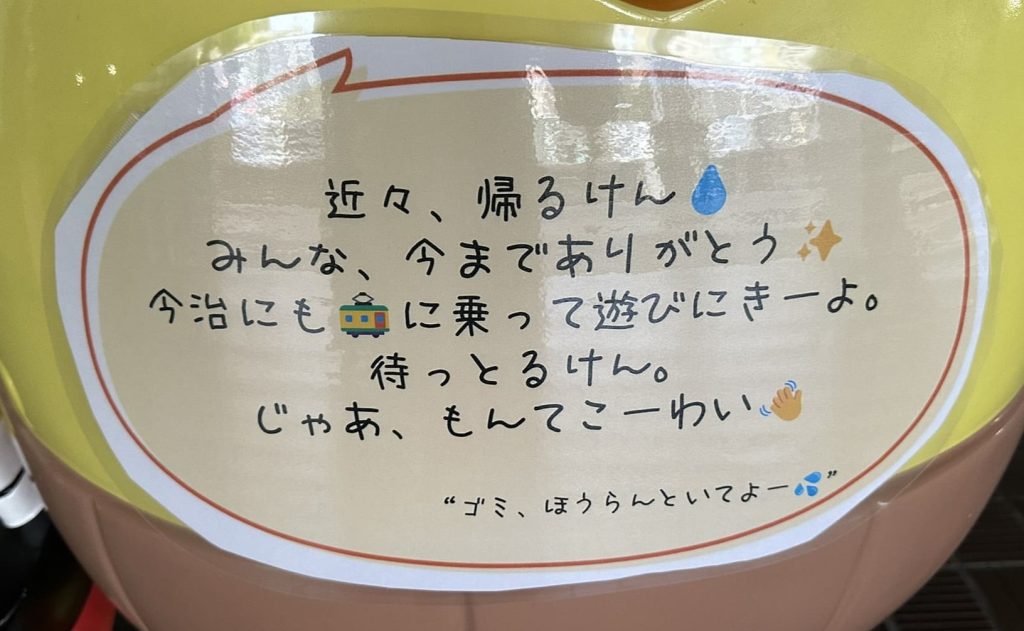 近々、帰るけん💧
みんな、今までありがとう✨
今治にも🚋に乗って遊びにきーよ。
待っとるけん。
じゃあ、もんてこーわい👋
“ゴミ、ほうらんといてよー💦”